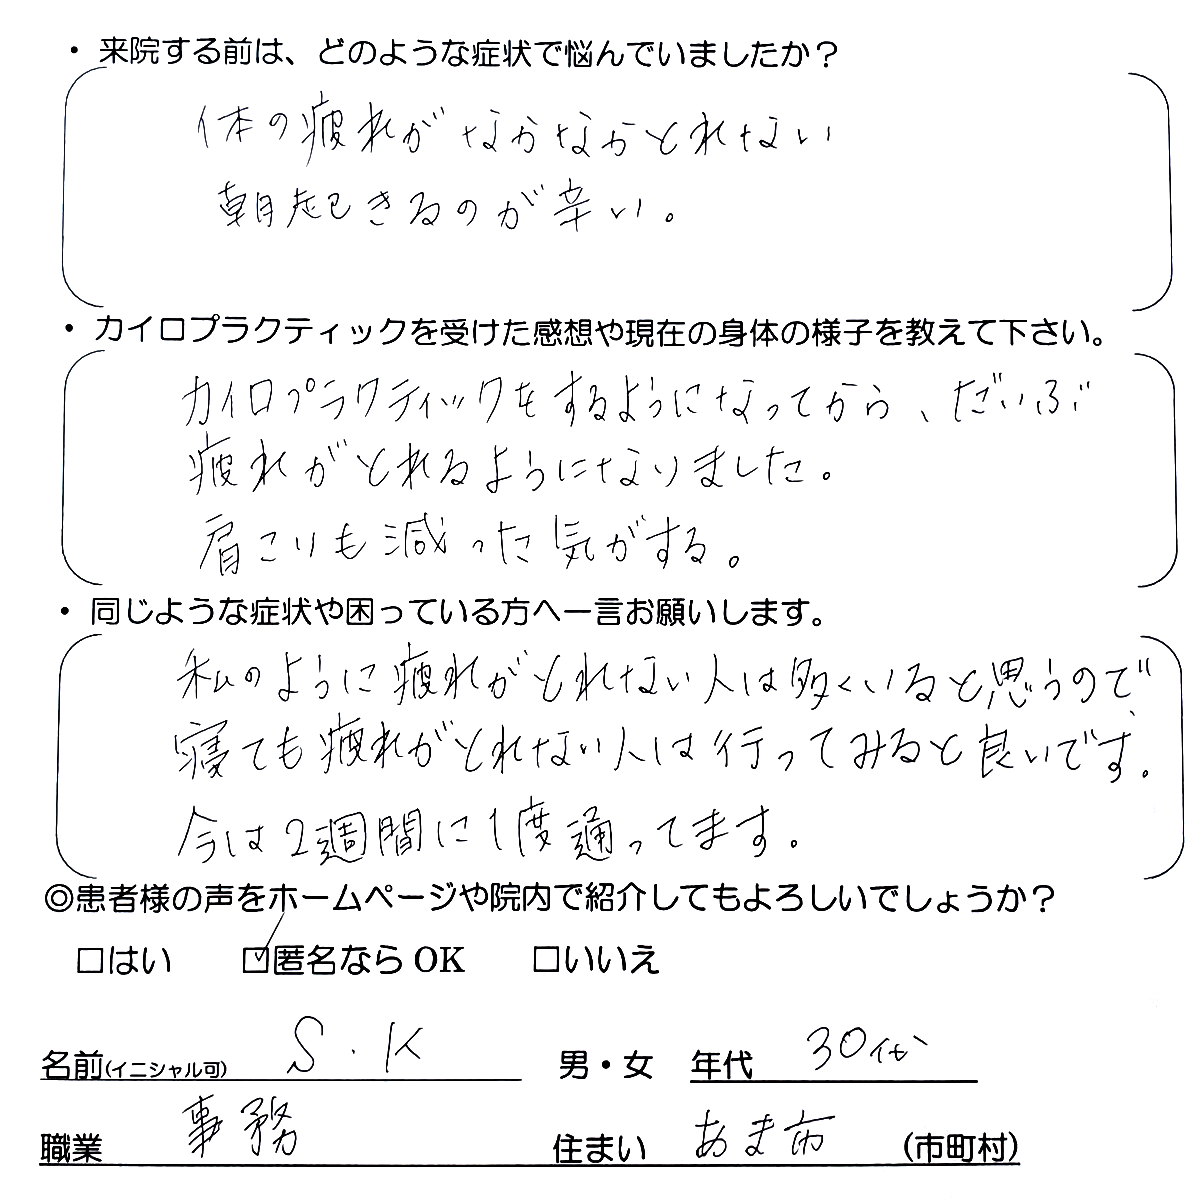 ・来院する前は、どのような症状で悩んでいましたか？
体の疲れがなかなかとれない
朝起きるのが辛い。
・カイロプラクティックを受けた感想や現在の身体の様子を教えて下さい。
カイロプラクティックをするようになってから、だいぶ
疲れがとれるようになりました。
肩こりも減った気がする。
・同じような症状や困っている方へ一言お願いします。
私のように疲れがとれない人は多くいると思うので、
寝ても疲れがとれない人は行ってみると良いです。
今は2週間に1度通ってます。
◎患者様の声をホームページや院内で紹介してもよろしいでしょうか？
□はい ☑匿名ならOK □いいえ
名前(イニシャル可) S.K 男・女 年代 30代
職業 事務 住まい あま市 (市町村)